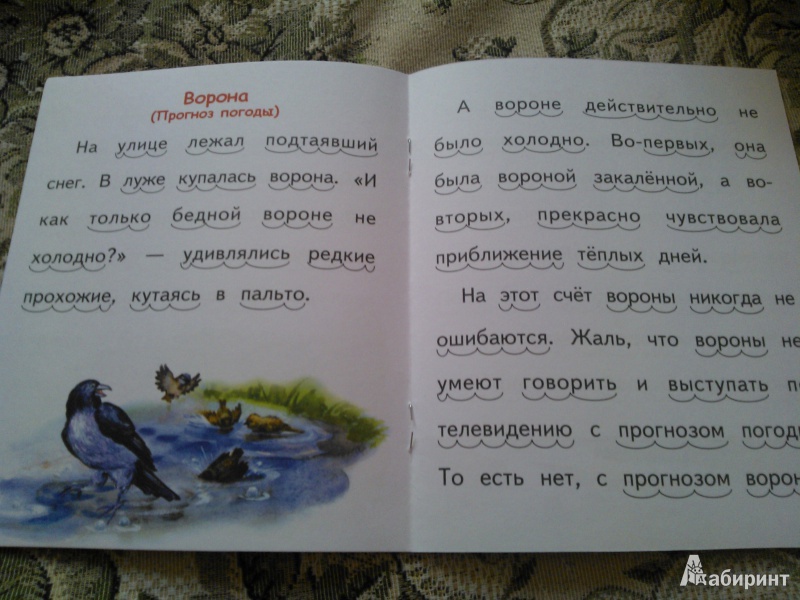 Ворона
(Прогноз погоды)
На улице лежал подтаявший
снег. В луже купалась ворона. «И
как только бедной вороне не
холодно?» — удивлялись редкие
прохожие, кутаясь в пальто.
А вороне действительно не
было холодно. Во-первых, она
была вороной закалённой, а во-
вторых, прекрасно чувствовала
приближение тёплых дней.
На этот счёт вороны никогда не
ошибаются. Жаль, что вороны не
умеют говорить и выступать по
телевидению с прогнозом погоды
То есть нет, с прогнозом ворон
Лабиринт